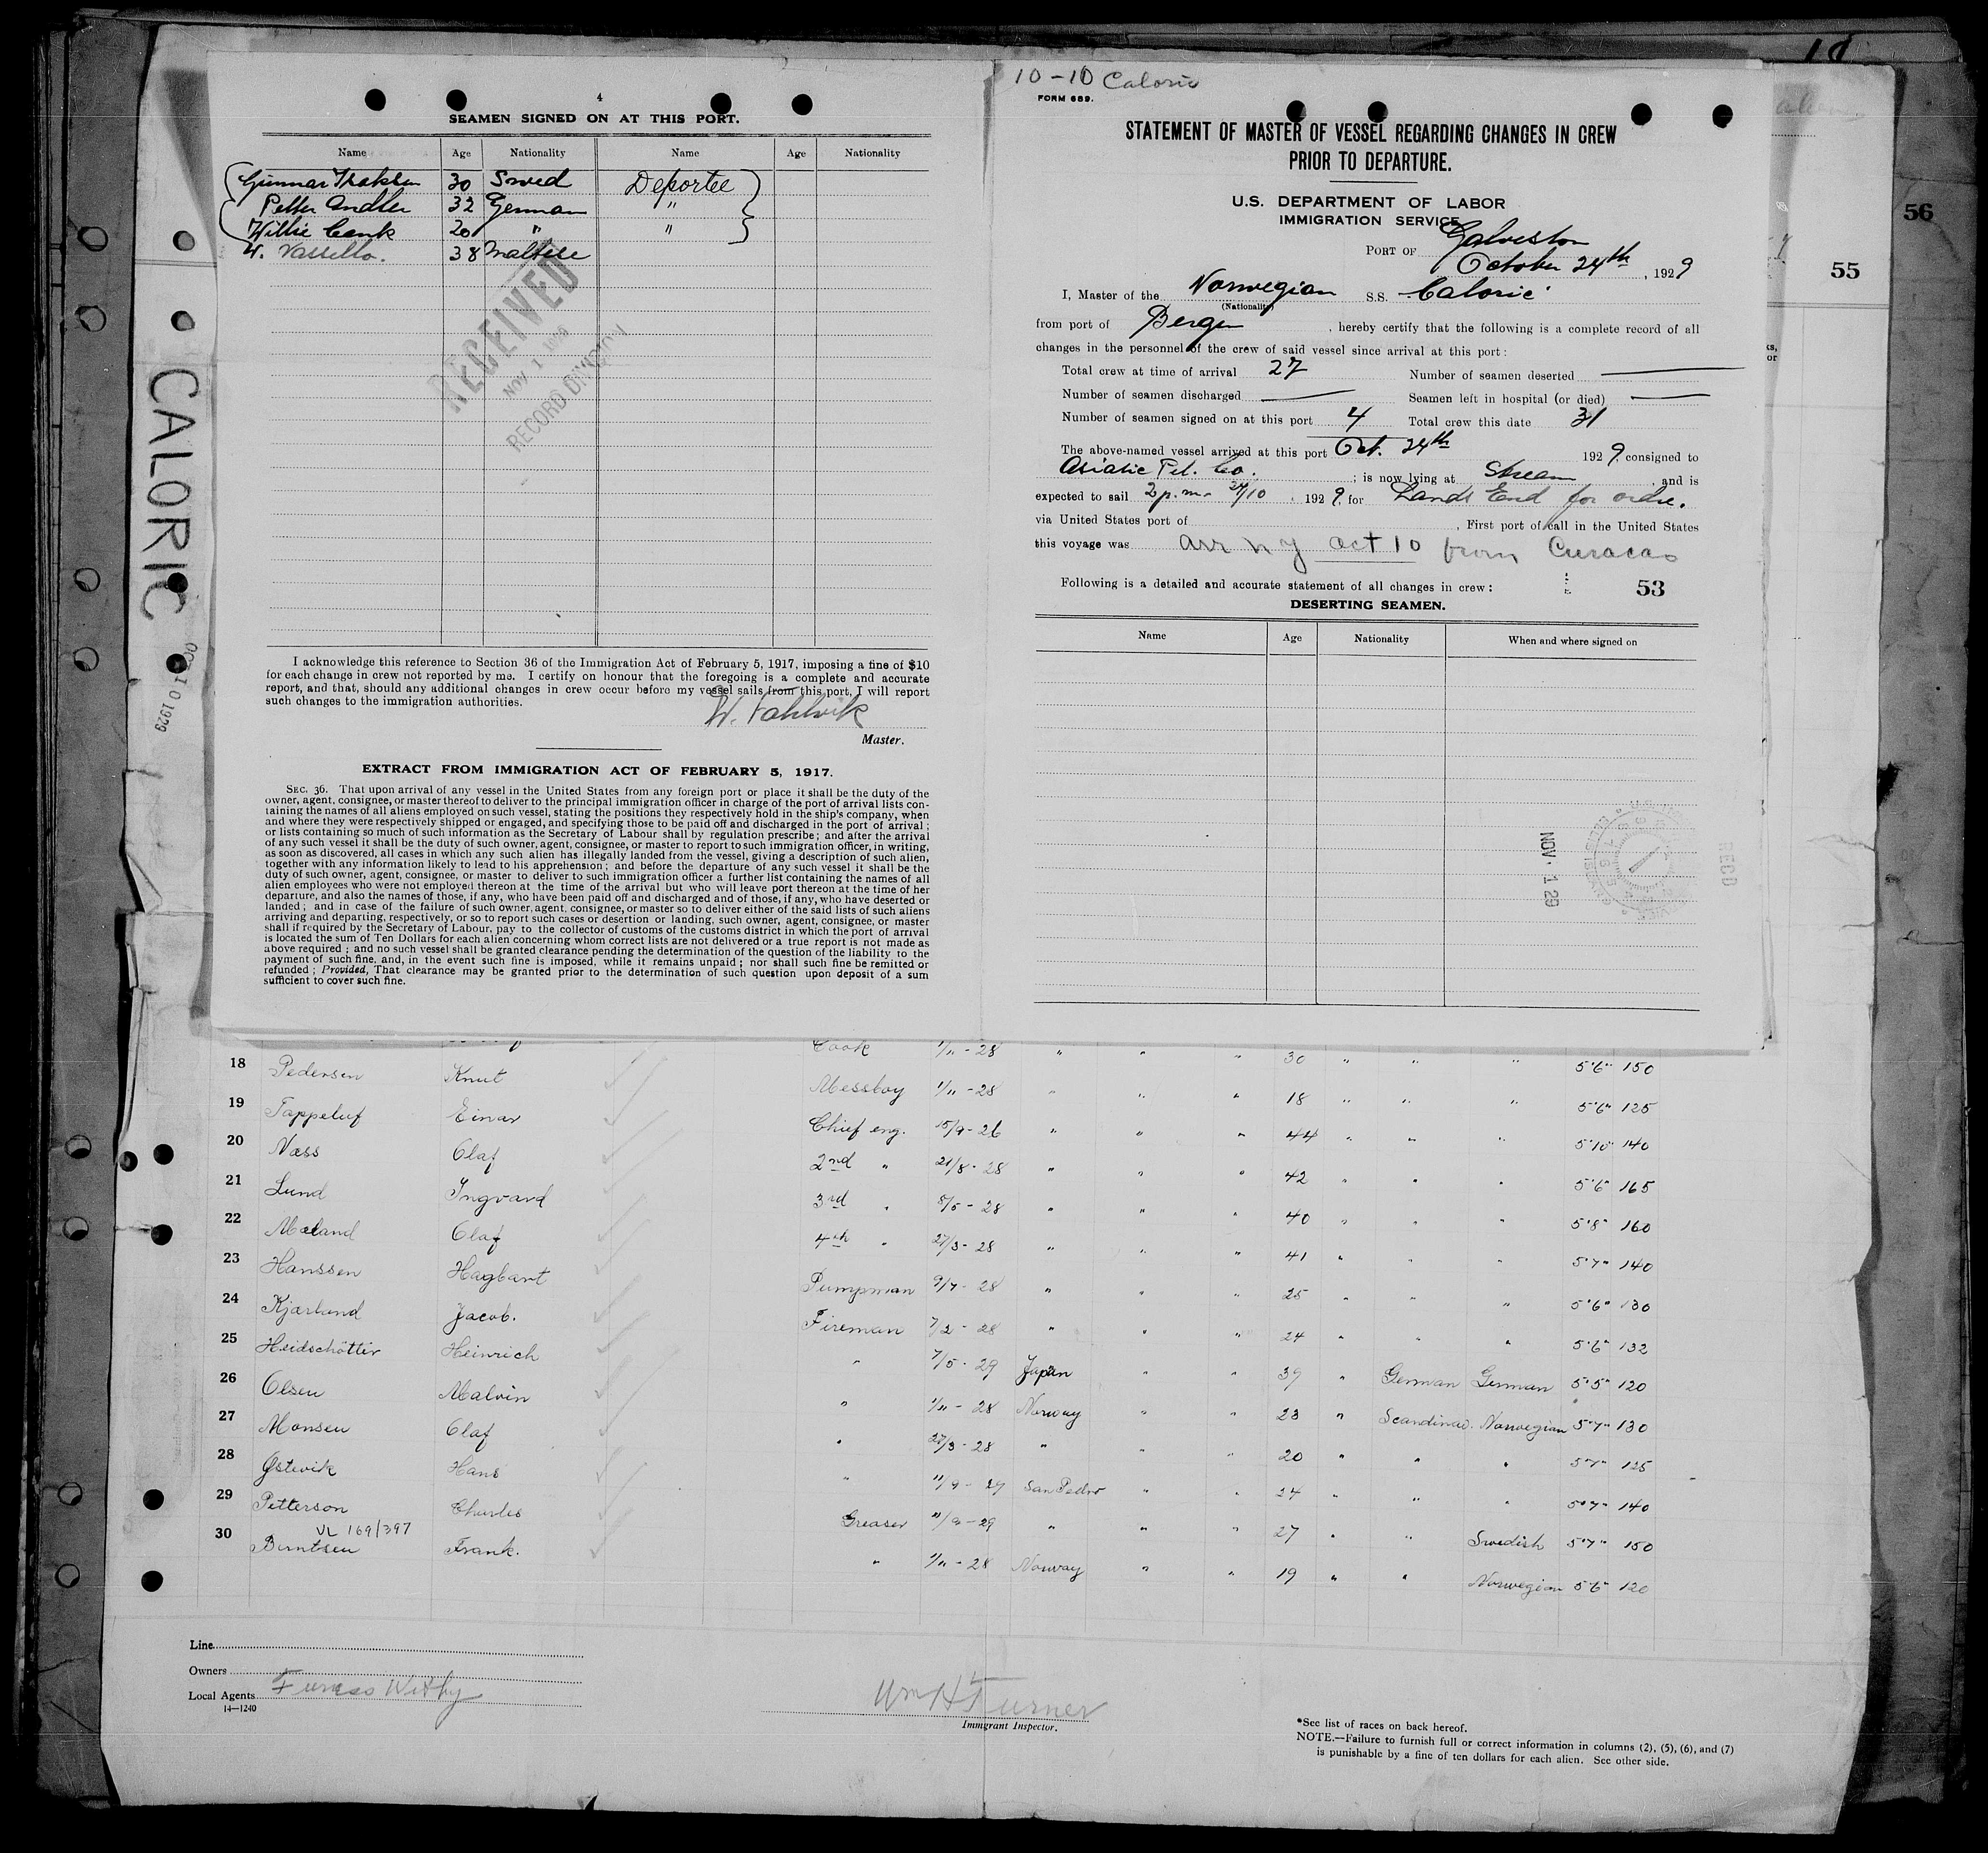 4
SEAMEN SIGNED ON AT THIS PORT.
Name Age Nationality Name Age Nationality
Gunnar 30 Swed Deportee
Petter Andler 32 German "
Willie Cenk 20 " "
W. Vassello. 38 Maltese
RECEIVED
NOV 1 1929
RECORD DIVISION
I acknowledge this reference to Section 36 of the Immigration Act of February 5, 1917, imposing a fine of $10
for each change in crew not reported by me. I certify on honour that the foregoing is a complete and accurate
report, and that, should any additional changes in crew occur before my vessel sails from this port, I will report
such changes to the immigration authorities.
W. Fahlvik
Master.
EXTRACT FROM IMMIGRATION ACT OF FEBRUARY 5, 1917.
SEC. 36. That upon arrival of any vessel in the United States from any foreign port or place it shall be the duty of the
owner, agent, consignee, or master thereof to deliver to the principal immigration officer in charge of the port of arrival lists con-
taining the names of all aliens employed on such vessel, stating the positions they respectively hold in the ship's company, when
and where they were respectively shipped or engaged, and specifying those to be paid off and discharged in the port of arrival;
or lists containing so much of such information as the Secretary of Labour shall by regulation prescribe; and after the arrival
of any such vessel it shall be the duty of such owner, agent, consignee, or master to report to such immigration officer, in writing,
as soon as discovered, all cases in which any such alien has illegally landed from the vessel, giving a description of such alien,
together with any information likely to lead to his apprehension; and before the departure of any such vessel it shall be the
duty of such owner, agent, consignee, or master to deliver to such immigration officer a further list containing the names of all
alien employees who were not employed thereon at the time of the arrival but who will leave port thereon at the time of her
departure, and also the names of those, if any, who have been paid off and discharged and of those, if any, who have deserted or
landed; and in case of the failure of such owner, agent, consignee, or master so to deliver either of the said lists of such aliens
arriving and departing, respectively, or so to report such cases or desertion or landing, such owner, agent, consignee, or master
shall if required by the Secretary of Labour, pay to the collector of customs of the customs district in which the port of arrival
is located the sum of Ten Dollars for each alien concerning whom correct lists are not delivered or a true report is not made as
above required; and no such vessel shall be granted clearance pending the determination of the question of the liability to the
payment of such fine, and, in the event such fine is imposed, while it remains unpaid; nor shall such fine be remitted or
refunded; Provided, That clearance may be granted prior to the determination of such question upon deposit of a sum
sufficient to cover such fine.
10-10 Caloric
FORM 689.
STATEMENT OF MASTER OF VESSEL REGARDING CHANGES IN CREW
PRIOR TO DEPARTURE.
U.S. DEPARTMENT OF LABOR
IMMIGRATION SERVICE
PORT OF Galveston
October 24th, 1929
I, Master of the Norwegian S.S. Caloric
(Nationality)
from port of Bergen, hereby certify that the following is a complete record of all
changes in the personnel of the crew of said vessel since arrival at this port:
Total crew at time of arrival 27 Number of seamen deserted —
Number of seamen discharged — Seamen left in hospital (or died) —
Number of seamen signed on at this port 4 Total crew this date 31
The above-named vessel arrived at this port Oct. 24th 1929, consigned to
Asiatic Pet. Co.; is now lying at Stream, and is
expected to sail 2 p.m. 24/10, 1929, for Lands End for order.
via United States port of , First port of call in the United States
this voyage was arr ny oct 10 from Curacao
Following is a detailed and accurate statement of all changes in crew: 53
DESERTING SEAMEN.
Name Age Nationality When and where signed on
NOV. 1 29
RECD
56
55
CALORIC
OCT 10 1929
Cook 1/11-28 " " " 30 " " " 5'6" 150
18 Pedersen Knut Messboy 1/11-28 " " " 18 " " " 5'6" 125
19 Tappeluf Einar Chief eng. 15/9-26 " " " 44 " " " 5'10" 140
20 Næss Olaf 2nd " 21/8-28 " " " 42 " " " 5'6" 165
21 Lund Ingvard 3rd " 8/5-28 " " " 40 " " " 5'8" 160
22 Mæland Olaf 4th " 27/3-28 " " " 41 " " " 5'7" 140
23 Hanssen Hagbart Pumpman 9/7-28 " " " 25 " " " 5'6" 130
24 Kjærland Jacob. Fireman 7/2-28 " " " 24 " " " 5'6" 132
25 Heidschötter Heinrich " 7/5-29 Japan " " 39 " German German 5'5" 120
26 Olsen Malvin " 1/11-28 Norway " " 23 " Scandinav. Norwegian 5'7" 130
27 Monsen Olaf " 27/3-28 " " " 20 " " " 5'7" 125
28 Østevik Hans " 11/9-29 San Pedro " " 24 " " " 5'7" 140
29 Petterson Charles Greaser 11/9-29 " " " 27 " " Swedish 5'7" 150
VL 169/397
30 Berntsen Frank. " 1/11-28 Norway " " 19 " " Norwegian 5'6" 120
Line
Owners
Local Agents Furness Withy
14—1240
Wm H Turner
Immigrant Inspector.
*See list of races on back hereof.
NOTE.—Failure to furnish full or correct information in columns (2), (5), (6), and (7)
is punishable by a fine of ten dollars for each alien. See other side.